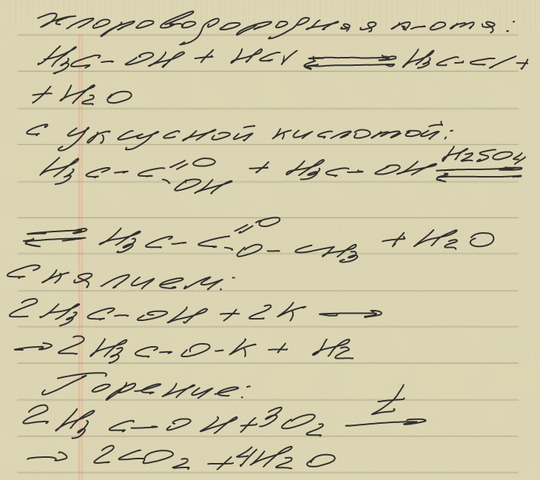 Хлороводородная к-ота:
H₃C-OH + HCl ⇌ H₃C-Cl +
+ H₂O
с уксусной кислотой:
H₃C-C(=O)(-OH) + H₃C-OH ⇌ H₂SO₄
⇌ H₃C-C(=O)(-O-CH₃) + H₂O
С калием:
2H₃C-OH + 2K →
→ 2H₃C-O-K + H₂
Горение:
2H₃C-OH + 3O₂ t→
→ 2CO₂ + 4H₂O